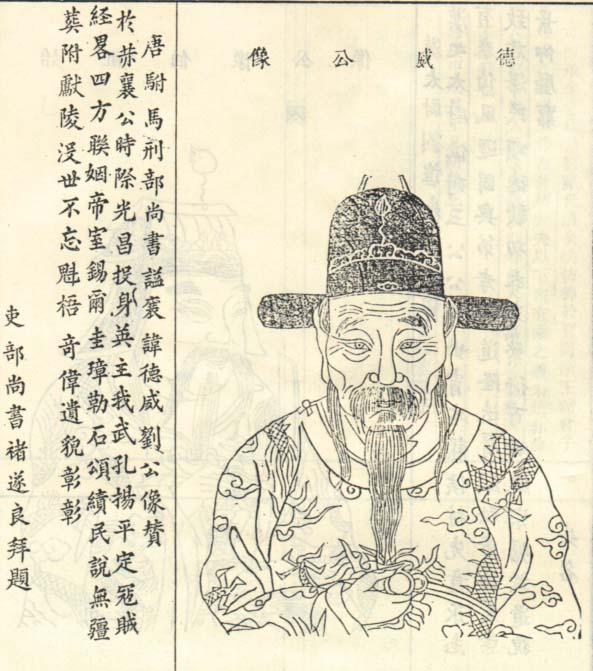 德威公像
唐駙馬刑部尚書謚襄諱德威劉公像贊
於恭襄公時際光昌投身英主我武孔揚平定冦賊
經畧四方聯姻帝室錫爾圭璋勒石頌績民說無疆
葬附獻陵沒世不忘魁梧竒偉遺貌彰彰
吏部尚書褚遂良拜題